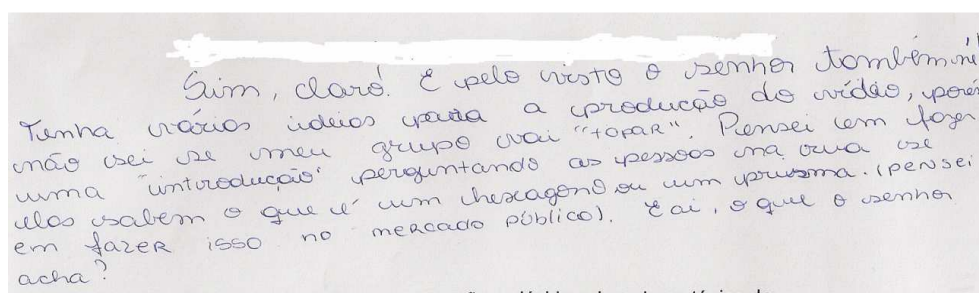 Sim, claro! E pelo visto o senhor também né!
Tenho várias ideias para a producão do vídeo, porem
não sei se meu grupo vai "topar". Pensei em fazer
uma "introducão" perguntando as pessoas na rua se
elas sabem o que é um hexagono ou um prisma. (pensei
em fazer isso no mercado público). E ai, o que o senhor
acha?